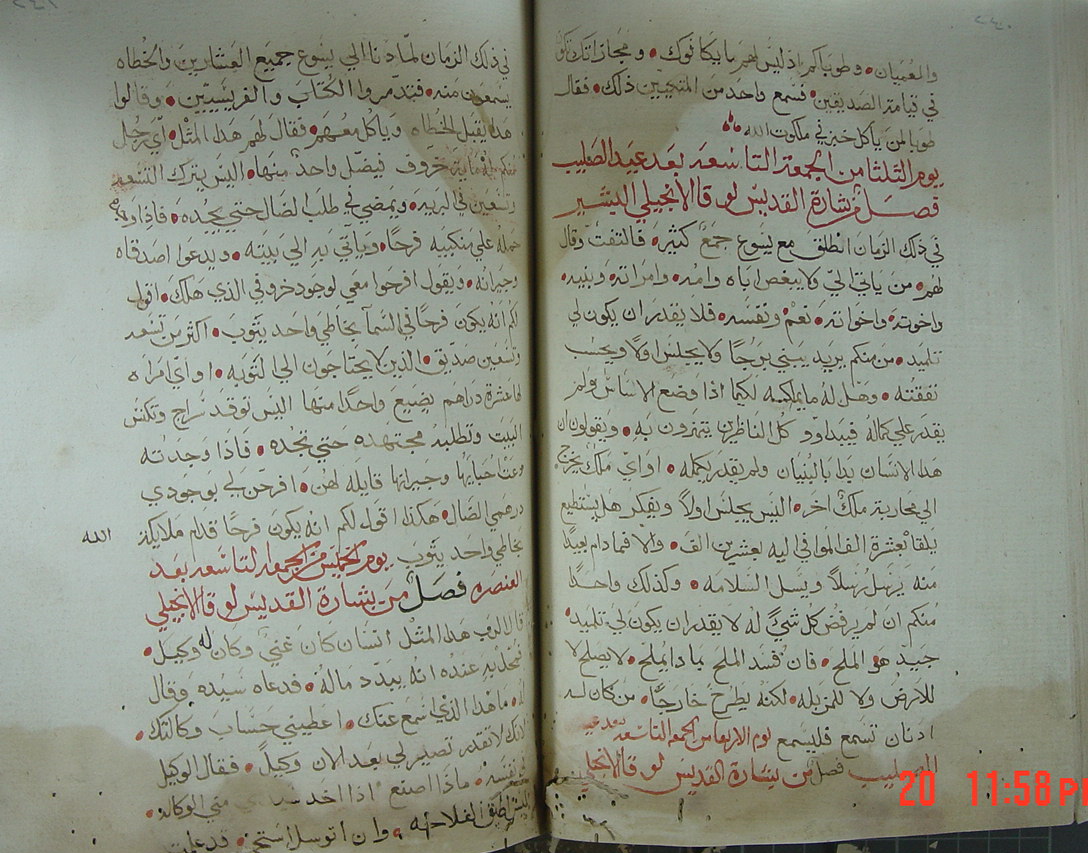 والعميان • وطوباكم اذ ليس لهم ما يكافونك • ومجازاتك تكون
في قيامة الصديقين • فسمع واحد من المتكيين ذلك • فقال
طوبا لمن ياكل خبز في ملكوت الله
يوم التلتا من الجمعة التاسعة بعد عيد الصليب
فصل من بشارة القديس لوقا الانجيلي البشير
في ذلك الزمان انطلق مع يسوع جمع كثير • فالتفت وقال
لهم • من ياتي الي ولا يبغض اباه وامه • وامراته • وبنيه •
واخوته • واخواته • نعم • ونفسه • فلا يقدر ان يكون لي
تلميد • من منكم يريد يبني برجا ولا يجلس اولا ويحسب
نفقته • وهل له ما يكمله لكيما اذا وضع الاساس ولم
يقدر على كماله فيبداوو كل الناظرين يتهزون به • ويقولون ان
هدا الانسان بدا بالبنيان ولم يقدر يكمله • او اي ملك يخرج
الى محاربة ملك اخر • اليس يجلس اولا ويفكر هل يستطيع
يلقا بعشرة الف الموافي اليه بعشرين الف • والا فما دام بعيدا
منه يرسل رسلا ويسل السلامه • وكذلك واحدا
منكم ان لم يرفض كل شي له لا يقدر ان يكون لي تلميد •
جيد هو الملح • فان فسد الملح بما دا يملح • لا يصلح لا
للارض ولا للمزبله • لكنه يطرح خارجا • من كان له
ادنان تسمع فليسمع يوم الاربعا من الجمعه التاسعه بعد عيد
الصليب فصل من بشارة القديس لوقا الانجيلي
20 11:58 PM
في ذلك الزمان لما دنا الي يسوع جميع العشارين والخطاه
يسمعون منه • فتدمروا الكتاب والفريسيين • وقالوا
هدا يقبل الخطاه وياكل معهم • فقال لهم هدا المثل • اي رجل
منكم له ماية خروف فيضل واحد منها • اليس يترك التسعه
وتسعين في البريه • ويمضي في طلب الضال حتى يجده • فاذا وجده
حمله على منكبيه فرحا • وياتي به الى بيته • ويدعوا اصدقاه
وجيرانه • ويقول افرحوا معي لوجود خروفي الذي هلك • اقول
لكم انه يكون فرحا في السما بخاطي واحد يتوب • اكثر من تسعه
وتسعين صديق • الدين لا يحتاجون الى التوبه • او اي امراه
لها عشرة دراهم يضيع واحدا منها اليس توقد سراج وتكنس
البيت وتطلبه مجتهده حتى تجده • فاذا وجدته
دعت احبايها وجيرانها قايله لهن • افرحن لي بوجودي
درهمي الضال • هكذا اقول لكم انه يكون فرحا قدام ملايكة الله
بخاطي واحد يتوب يوم الخميس من الجمعه التاسعه بعد
العنصره فصل من بشارة القديس لوقا الانجيلي
قال الرب هدا المثل انسان كان غني وكان له وكيل •
عنده انه يبدد ماله • فدعاه سيده وقال
له • ما هدا الدي اسمع عنك • اعطيني حساب وكالتك •
لانك لا تقدر تصير لي بعد الان وكيل • فقال الوكيل
في نفسه • ماذا اصنع اذا اخد سيدي مني الوكاله •
لست اطيق الفلاحه • وان اتوسل استحي •